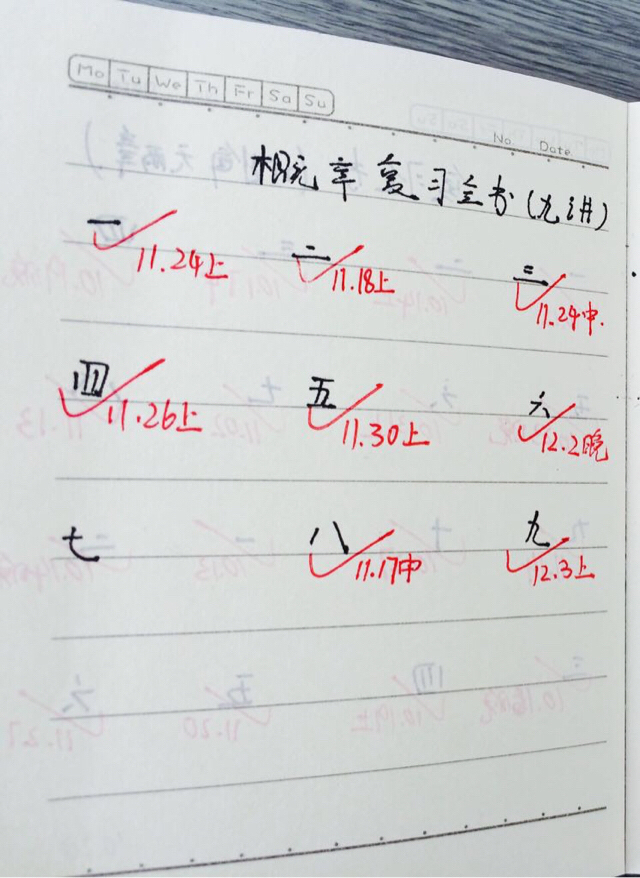 Mo Tu We Th Fr Sa Su
No. Date
概率复习全书(九讲)
一 11.24上 二 11.18上 三 11.24中.
四 11.26上 五 11.30上 六 12.2晚
七 八 11.17中 九 12.3上